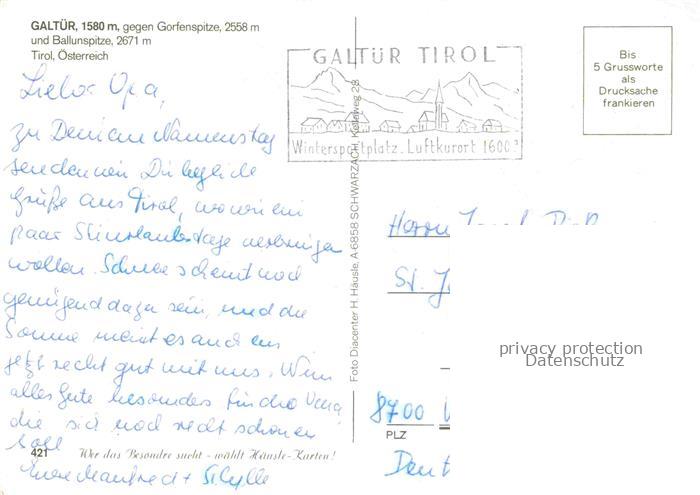 GALTÜR, 1580 m, gegen Gorfenspitze, 2558 m
und Ballunspitze, 2671 m
Tirol, Österreich
Lieber Opa,
zu Deinem Namenstag
senden wir Dir herzliche
Grüße aus Tirol, wo wir ein
paar Skiurlaubstage verbringen
wollen. Schnee scheint noch
genügend dazu sein, und die
Sonne meint es auch bis
jetzt recht gut mit uns. Wir
alles Gute besonders für die
die sich noch recht schonen
soll
Eure Manfred + Sibylle
421
Wer das Besondre sucht - wählt Häusle-Karten!
Foto Diacenter H. Häusle, A-6858 SCHWARZACH, Kellaweg 28
GALTÜR TIROL
Wintersportplatz. Luftkurort 1600
Bis
5 Grussworte
als
Drucksache
frankieren
Herrn
St. J
privacy protection
Datenschutz
8700
PLZ